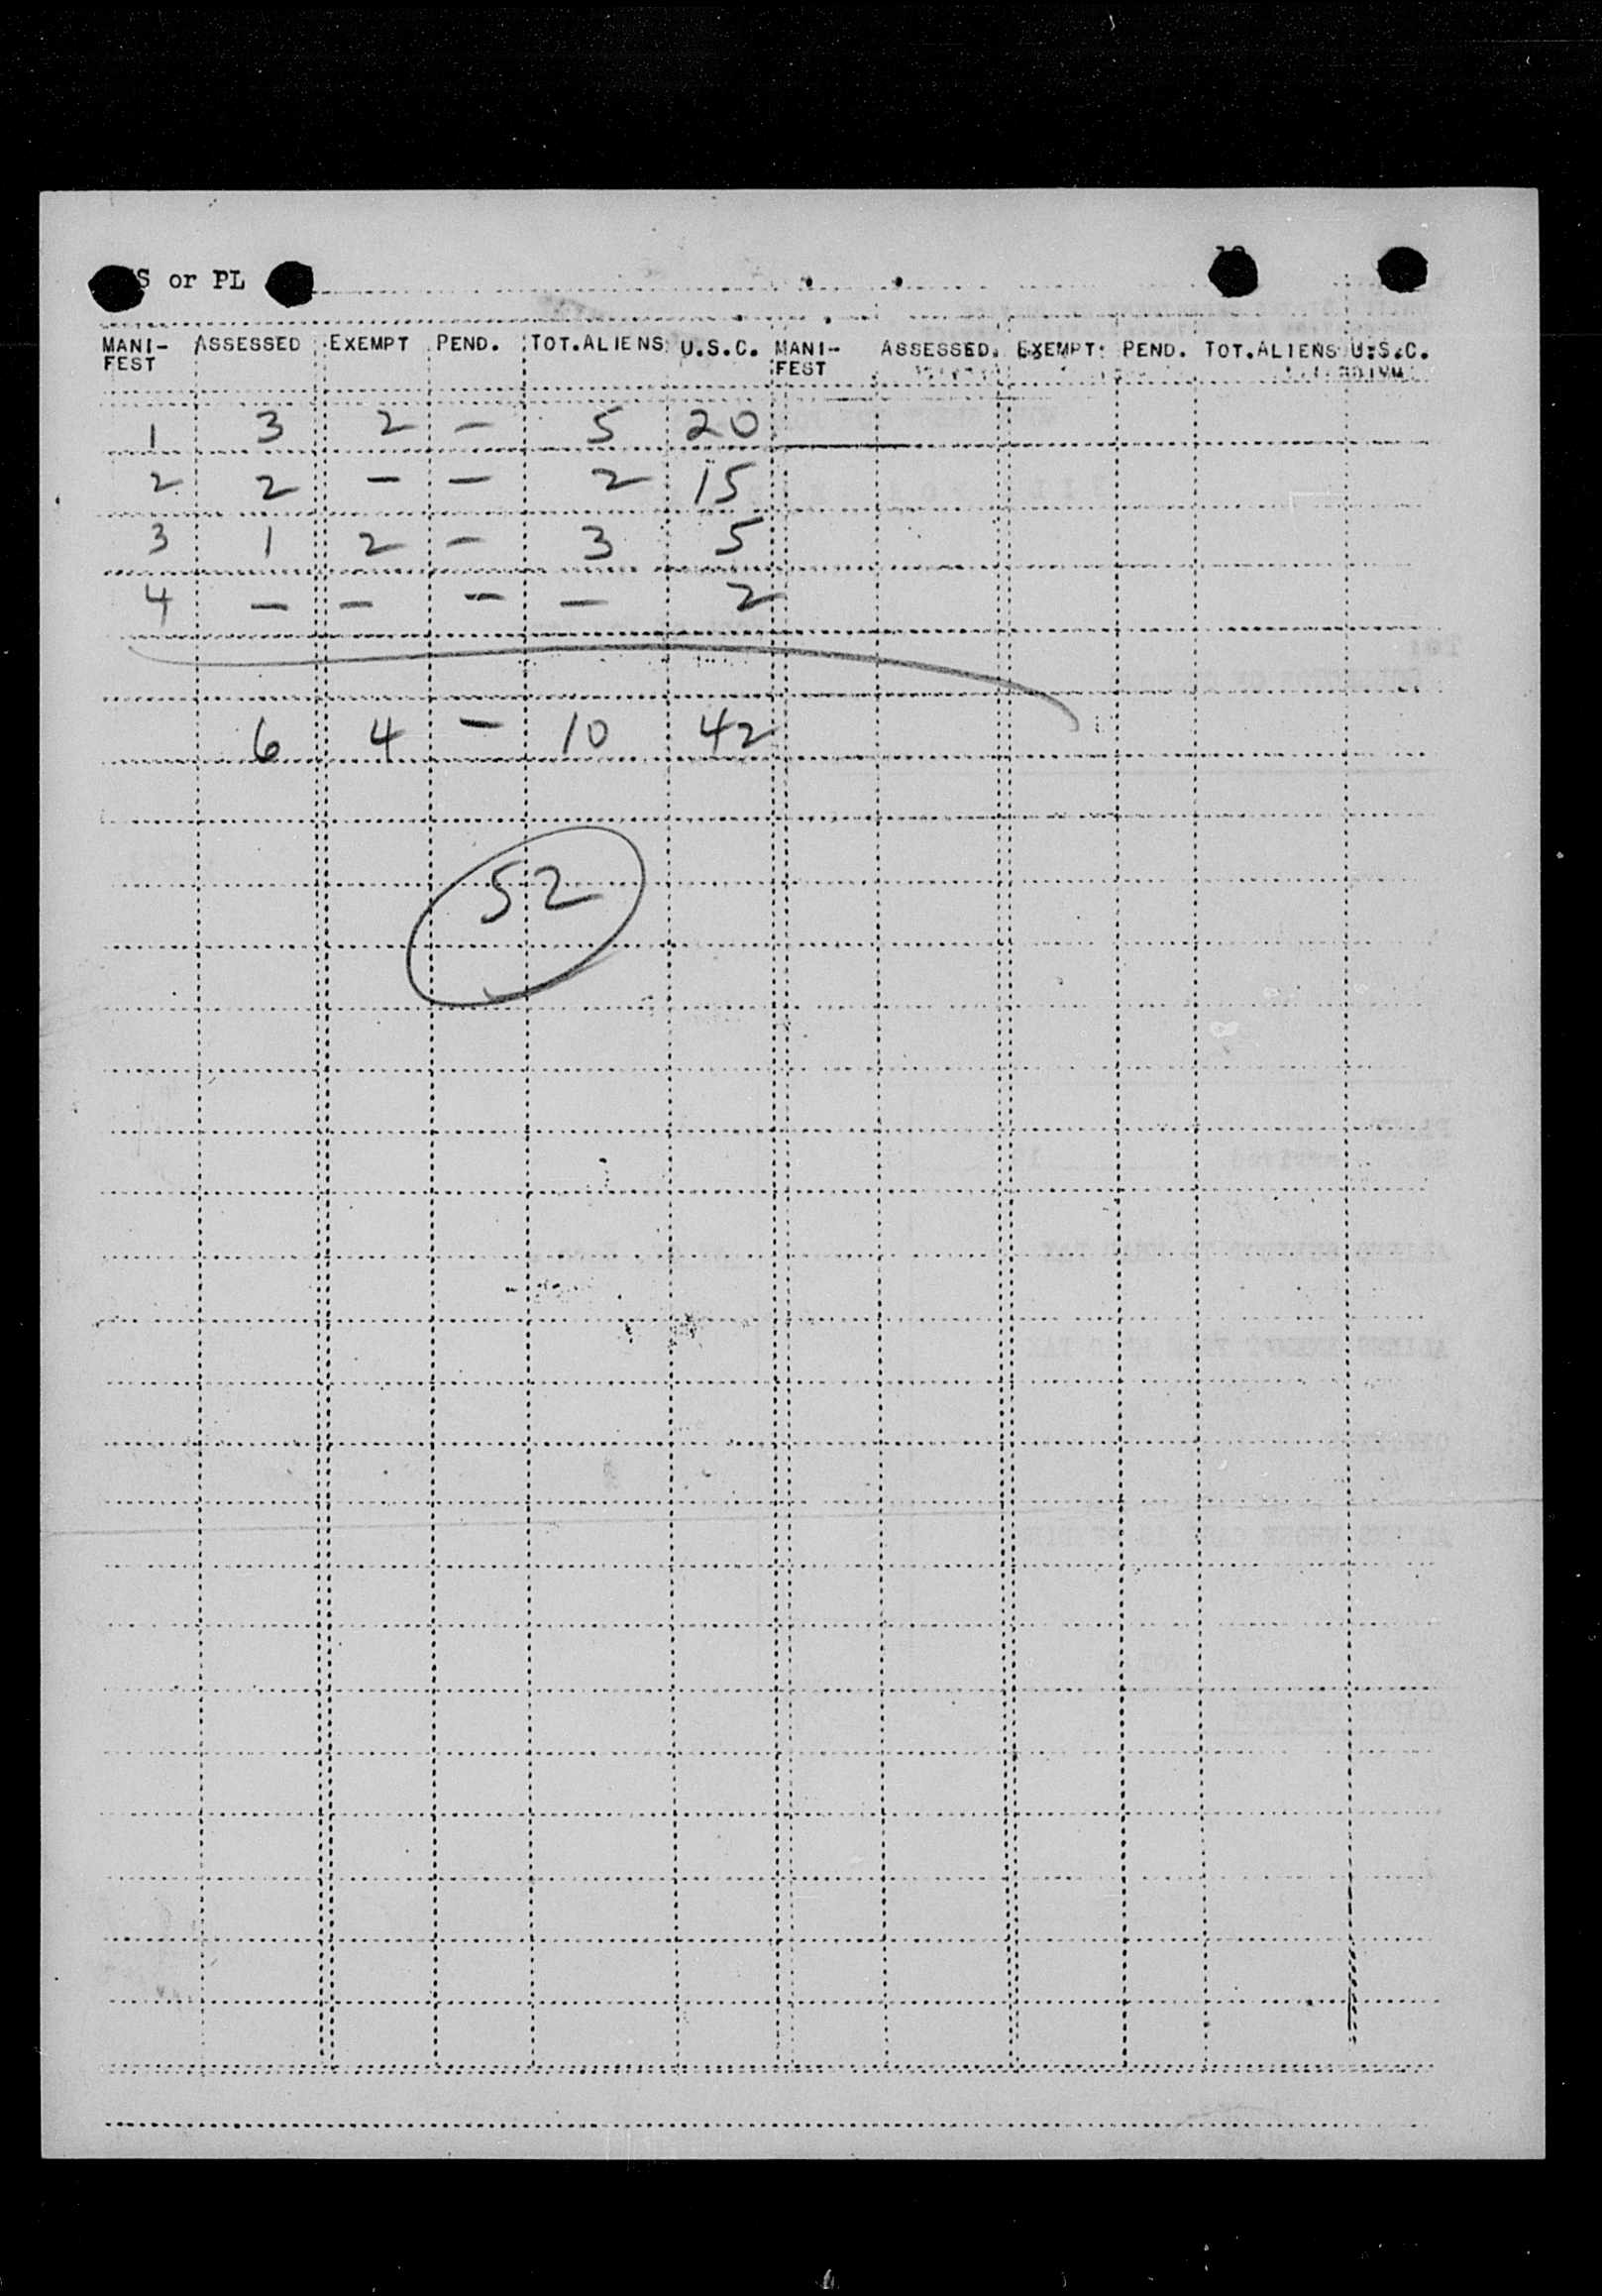 S or PL
MANI- ASSESSED EXEMPT PEND. TOT.ALIENS U.S.C. MANI- ASSESSED. EXEMPT. PEND. TOT.ALIENS U.S.C.
FEST FEST
1 3 2 - 5 20
2 2 - - 2 15
3 1 2 - 3 5
4 - - - - 2
6 4 - 10 42
52